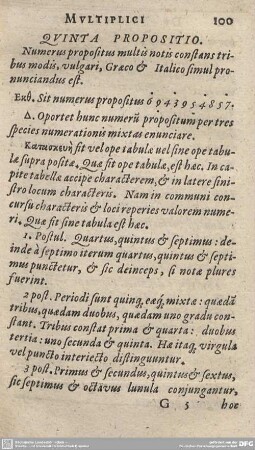 MVLTIPLICI 100
QVINTA PROPOSITIO.
Numerus propositus multis notis constans tri-
bus modis, vulgari, Græco & Italico simul pro-
nunciandus est.
Εκθ. Sit numerus propositus 6 9 4 3 9 5 4 8 5 7.
Δ. Oportet hunc numerũ propositum per tres
species numerationis mixtas enunciare.
Κατασκευή sit vel ope tabulæ uel sine ope tabu-
læ supra positæ. Quæ sit ope tabulæ, est hæc. In ca-
pite tabellæ accipe characterem, & in latere sini-
stro locum characteris. Nam in communi con-
cursu characteris & loci reperies valorem nume-
ri. Quæ sit sine tabula est hæc.
1. Postul. Quartus, quintus & septimus: de-
inde à septimo iterum quartus, quintus & septi-
mus punctetur, & sic deinceps, si notæ plures
fuerint.
2 post. Periodi sunt quinq, eæq́, mixtæ: quædã
tribus, quædam duobus, quædam uno gradu con-
stant. Tribus constat prima & quarta: duobus
tertia: uno secunda & quinta. Hæ itaq, virgula
vel puncto interiecto distinguuntur.
3 post. Primus & secundus, quintus & sextus,
sic septimus & octavus lunula conjungantur,
G 5 hoc